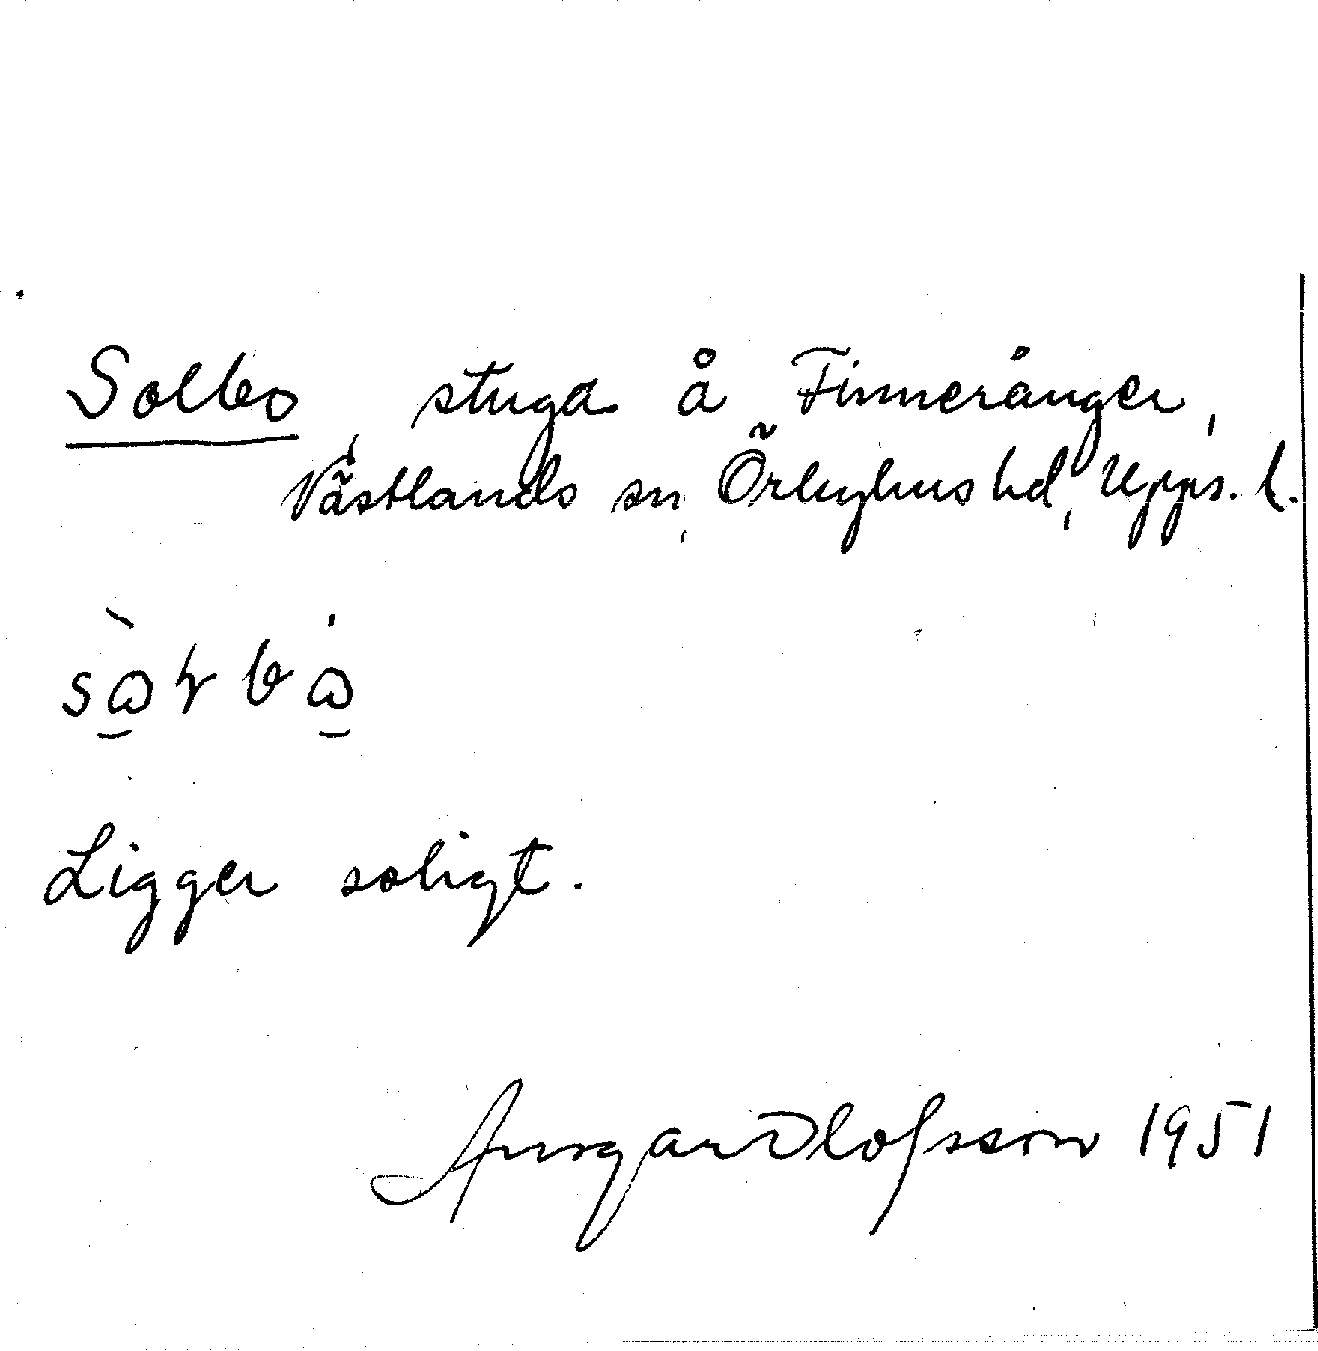 Solbo, stuga å Finneränger,
Västlands sn, Örbyhus hd, Upps. l.
Ligger soligt.
Ansgar Olofsson 1951